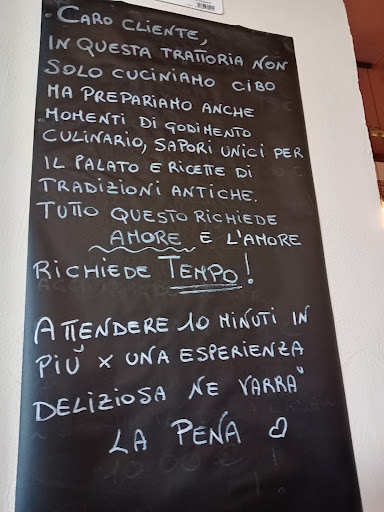 CARO CLIENTE,
IN QUESTA TRATTORIA NON
SOLO CUCINIAMO CIBO
MA PREPARIAMO ANCHE
MOMENTI DI GODIMENTO
CULINARIO, SAPORI UNICI PER
IL PALATO E RICETTE DI
TRADIZIONI ANTICHE.
TUTTO QUESTO RICHIEDE
AMORE E L'AMORE
RICHIEDE TEMPO!
ATTENDERE 10 MINUTI IN
PIÙ × UNA ESPERIENZA
DELIZIOSA NE VARRA"
LA PENA ♡